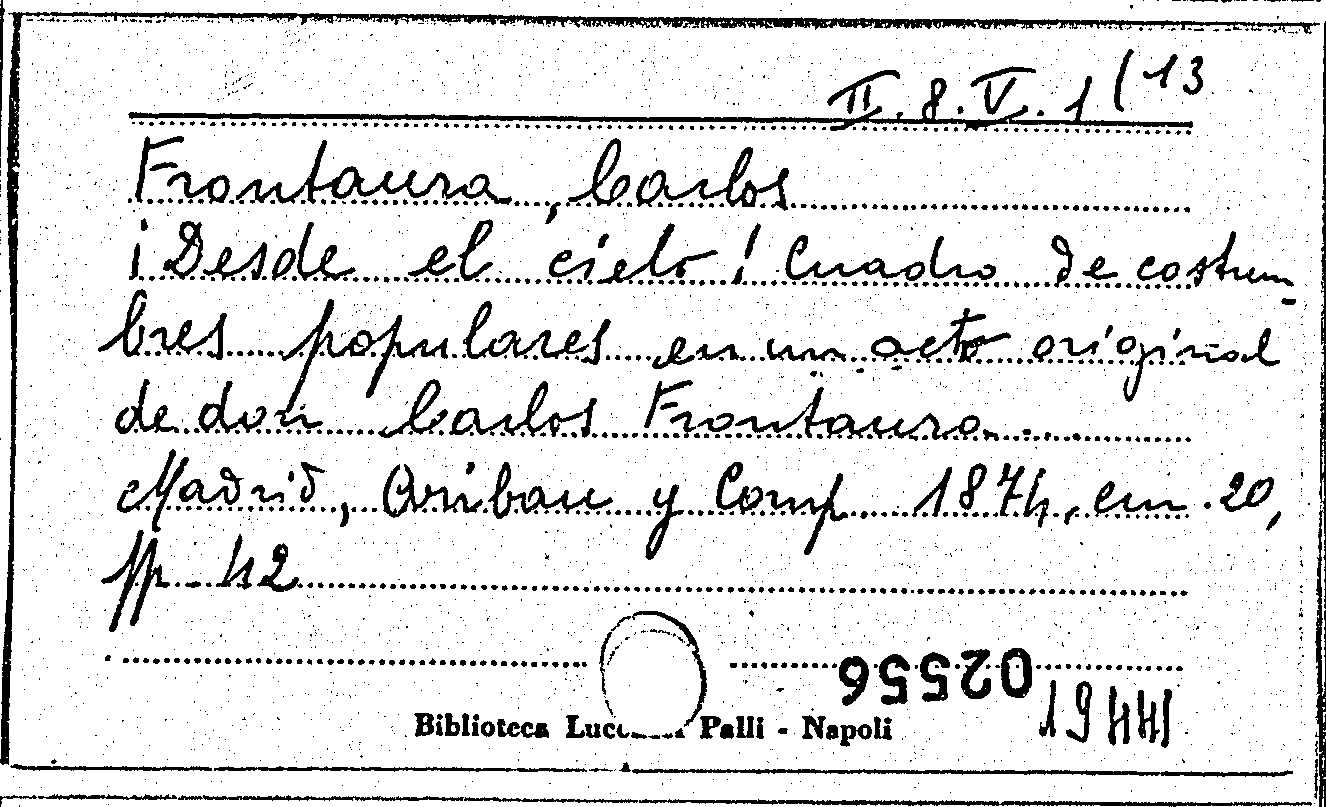 II.8.V.1(13
Frontaura, Carlos
¡Desde el cielo! Cuadro de costum-
bres populares en un acto original
de don Carlos Frontaura...
Madrid, Aribau y Comp. 1874, cm. 20,
pp. 42
02556
Biblioteca Palli - Napoli